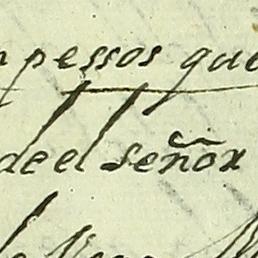 n pessos que
de el señor